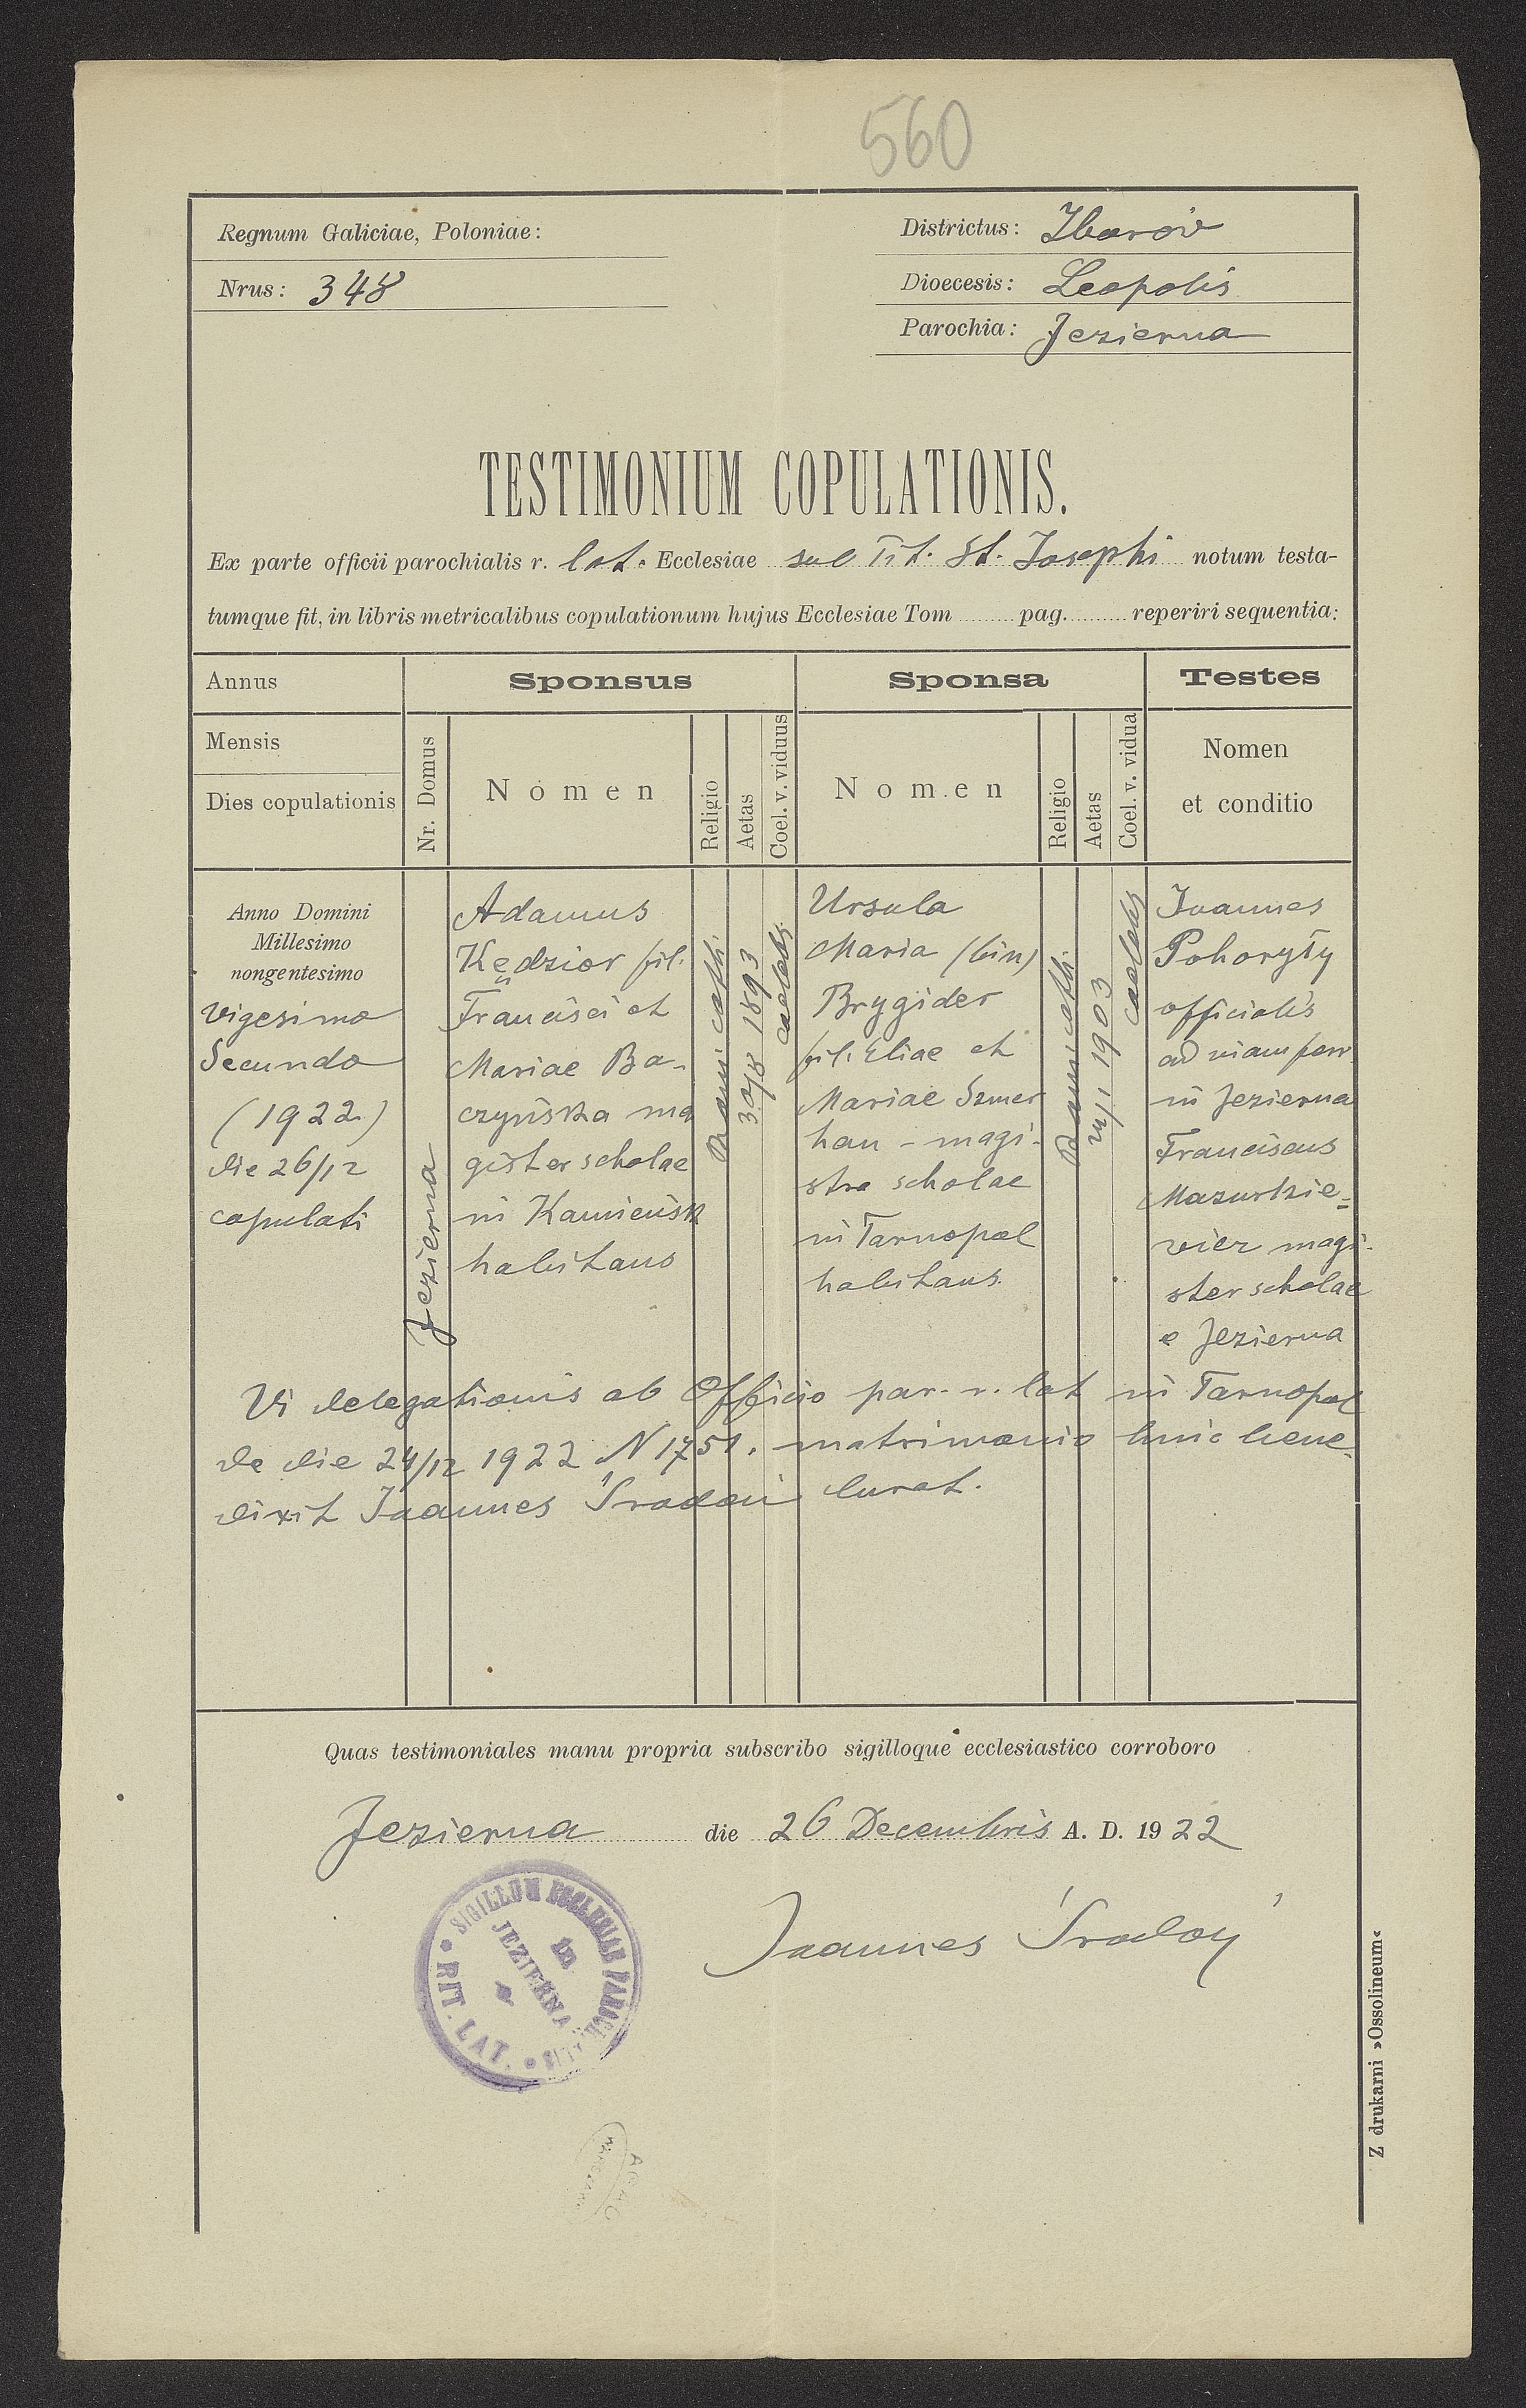 560
Regnum Galiciae, Poloniae:
Nrus: 348
Districtus: Zborów
Dioecesis: Leopolis
Parochia: Jezierna
TESTIMONIUM COPULATIONIS.
Ex parte officii parochialis r. lat. Ecclesiae sub Tit. St. Josephi notum testa-
tumque fit, in libris metricalibus copulationum hujus Ecclesiae Tom ........ pag. ........ reperiri sequentia:
Annus
Mensis
Dies copulationis
Sponsus
Nr. Domus
Nomen
Religio
Aetas
Coel. v. viduus
Sponsa
Nomen
Religio
Aetas
Coel. v. vidua
Testes
Nomen
et conditio
Anno Domini
Millesimo
nongentesimo
Vigesimo
Secundo
(1922)
die 26/12
copulati
Jezierna
Adamus
Kędzior fil.
Francisci et
Mariae Ba-
czyńska ma
gister scholae
in Kamieńsk
habitans
Rom. cath.
30/8 1893
caelebs
Ursula
Maria (bin)
Brygider
fil. Eliae et
Mariae Szmer
han - magi-
stra scholae
in Tarnopol
habitans.
Rom. cath.
1903
caelebs
Joannes
Pohoryły
officialis
ad viam ferr.
in Jezierna
Franciscus
Mazurkie-
wicz magi-
ster scholae
e Jezierna
Vi delegationis ab Officio par. r. lat in Tarnopol
de die 24/12 1922 N 1751. matrimonio huic bene-
dixit Joannes Śradoń curat.
Quas testimoniales manu propria subscribo sigilloque ecclesiastico corroboro
Jezierna die 26 Decembris A. D. 1922
Joannes Śradoń
SIGILLUM ECCLESIAE PAROCHIALIS * RIT. LAT. *
in
JEZIERNA
Z drukarni »Ossolineum«